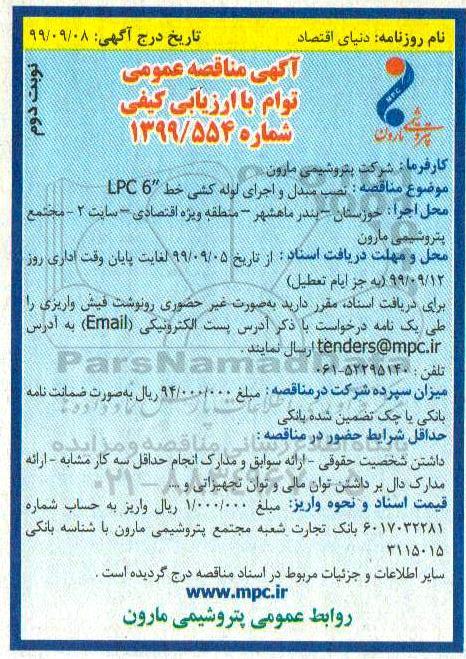 نام روزنامه: دنیای اقتصاد
تاریخ درج آگهی: ۹۹/۰۹/۰۸
نوبت دوم
آگهی مناقصه عمومی
توام با ارزیابی کیفی
شماره ۱۳۹۹/۵۵۴
MPC
پتروشیمی مارون
کارفرما: شرکت پتروشیمی مارون
موضوع مناقصه: نصب مبدل و اجرای لوله کشی خط ”6 LPC
محل اجرا: خوزستان – بندر ماهشهر – منطقه ویژه اقتصادی – سایت ۲ – مجتمع
پتروشیمی مارون
محل و مهلت دریافت اسناد: از تاریخ ۹۹/۰۹/۰۵ لغایت پایان وقت اداری روز
۹۹/۰۹/۱۲ (به جز ایام تعطیل)
برای دریافت اسناد، مقرر دارید به‌صورت غیر حضوری رونوشت فیش واریزی را
طی یک نامه درخواست با ذکر آدرس پست الکترونیکی (Email) به آدرس
tenders@mpc.ir ارسال نمایند.
تلفن: ۵۲۲۹۵۱۴۰-۰۶۱
میزان سپرده شرکت درمناقصه: مبلغ ۹۴/۰۰۰/۰۰۰ ریال به‌صورت ضمانت نامه
بانکی یا چک تضمین شده بانکی
حداقل شرایط حضور در مناقصه:
داشتن شخصیت حقوقی – ارائه سوابق و مدارک انجام حداقل سه کار مشابه – ارائه
مدارک دال بر داشتن توان مالی و توان تجهیزاتی و...
قیمت اسناد و نحوه واریز: مبلغ ۱/۰۰۰/۰۰۰ ریال واریز به حساب شماره
۶۰۱۷۰۳۲۲۸۱ بانک تجارت شعبه مجتمع پتروشیمی مارون با شناسه بانکی
۳۱۱۵۰۱۵
سایر اطلاعات و جزئیات مربوط در اسناد مناقصه درج گردیده است.
www.mpc.ir
روابط عمومی پتروشیمی مارون
ParsNamad